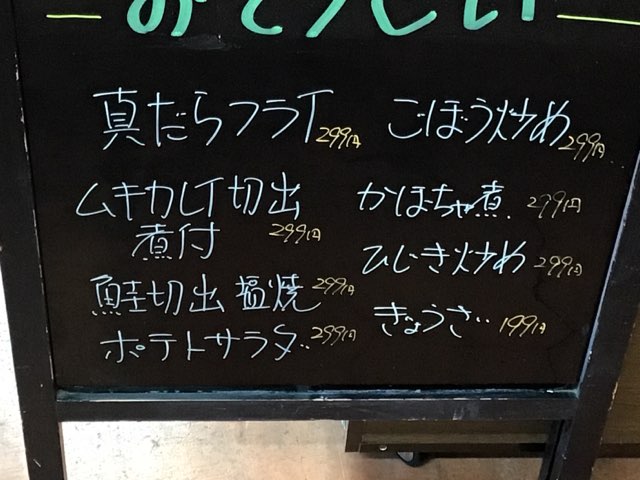 おそうざい
真だらフライ 299円
ムキカレイ切出
煮付 299円
鮭切出 塩焼 299円
ポテトサラダ 299円
ごぼう炒め 299円
かぼちゃ煮 299円
ひじき炒め 299円
ぎょうざ 199円